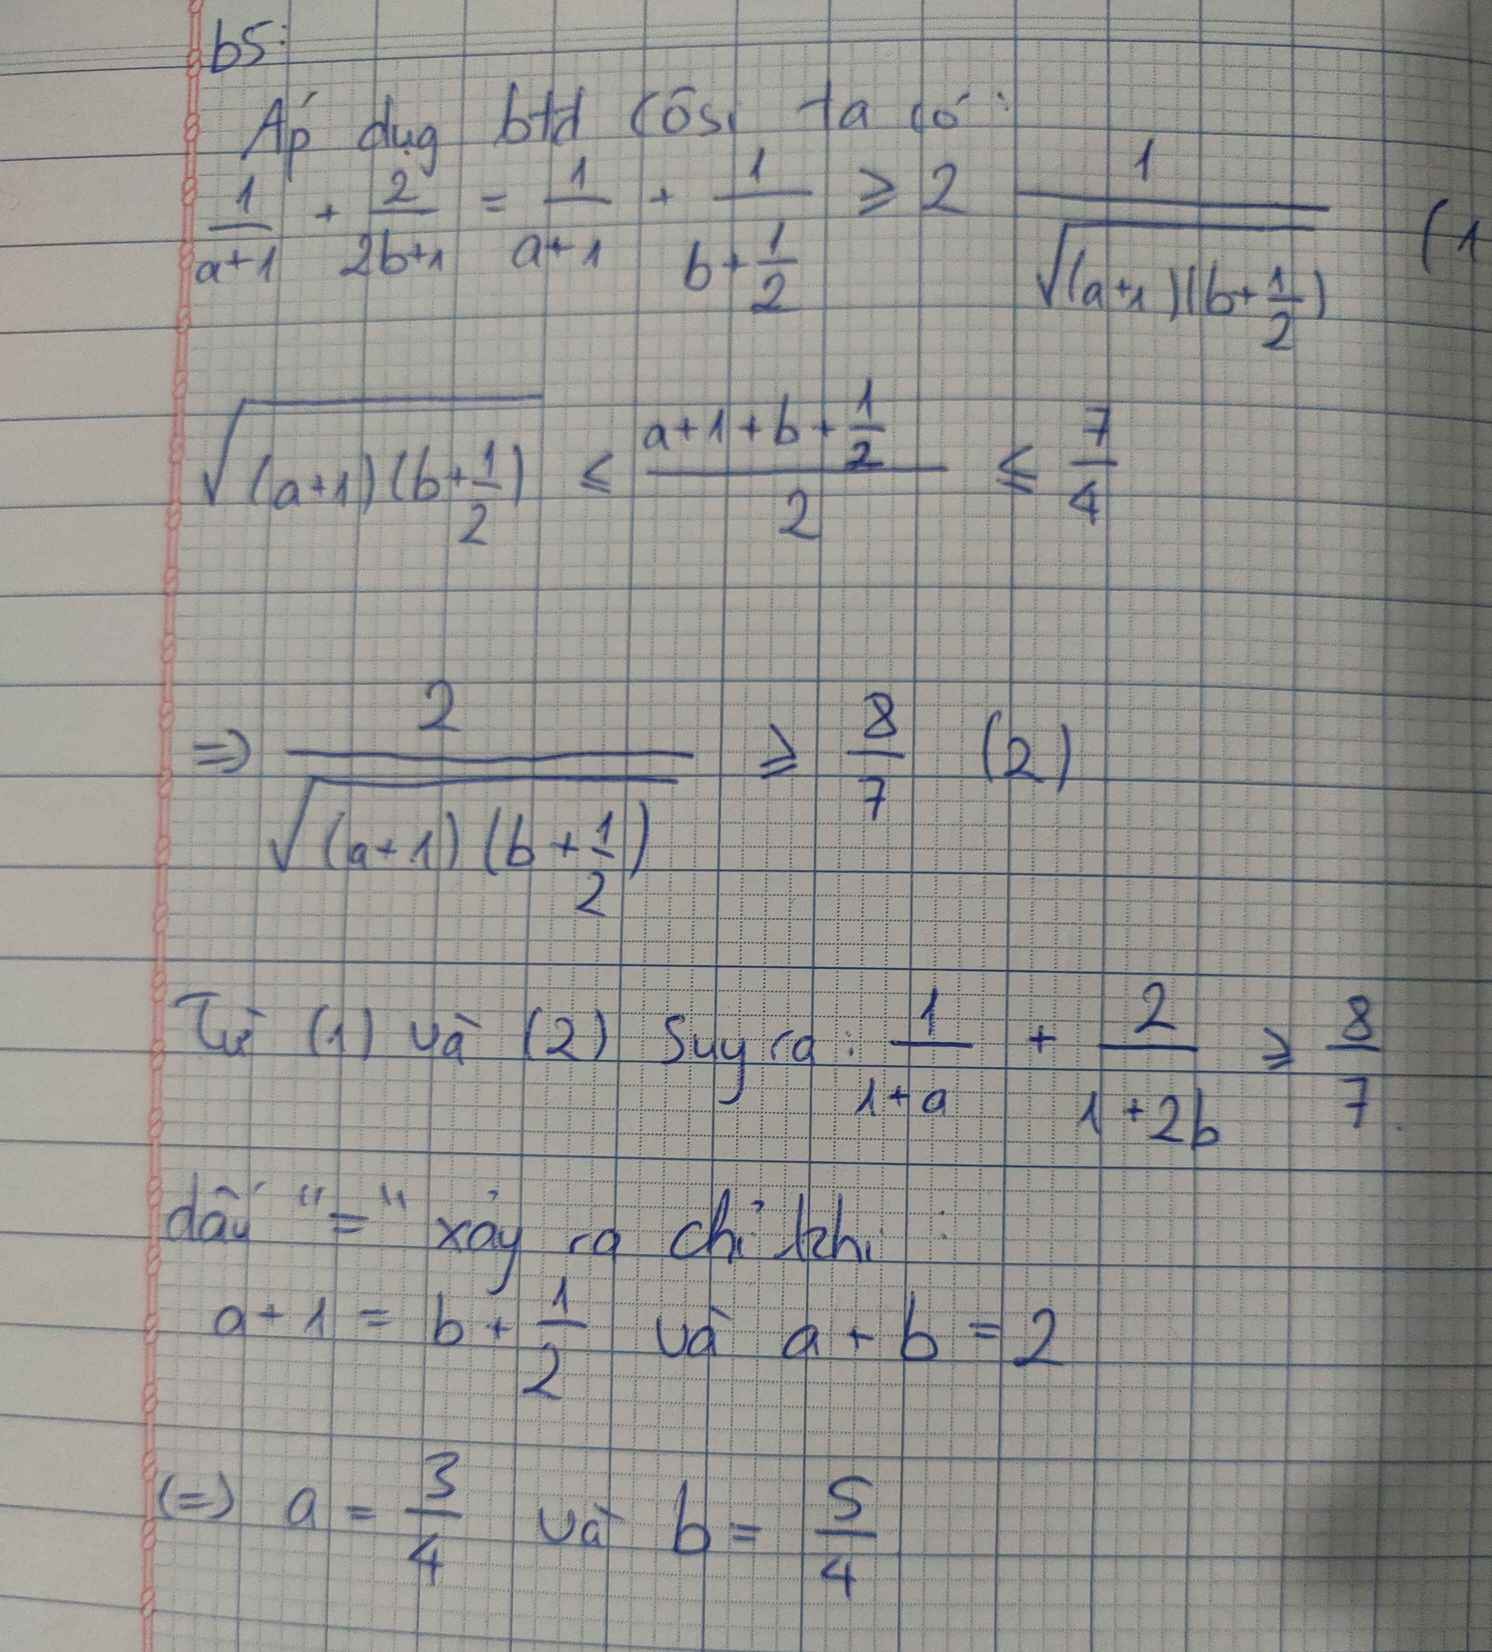 b5:
Áp dụg btđ Côsi ta có:
1/(a+1) + 2/(2b+1) = 1/(a+1) + 1/(b+1/2) ≥ 2 1/√((a+1)(b+1/2)) (1
√((a+1)(b+1/2)) ≤ (a+1+b+1/2)/2 ≤ 7/4
=> 2/√((a+1)(b+1/2)) ≥ 8/7 (2)
Từ (1) và (2) Suy ra: 1/(1+a) + 2/(1+2b) ≥ 8/7.
dấu "=" xảy ra chỉ khi:
a+1 = b+1/2 và a+b = 2
(=) a = 3/4 và b = 5/4